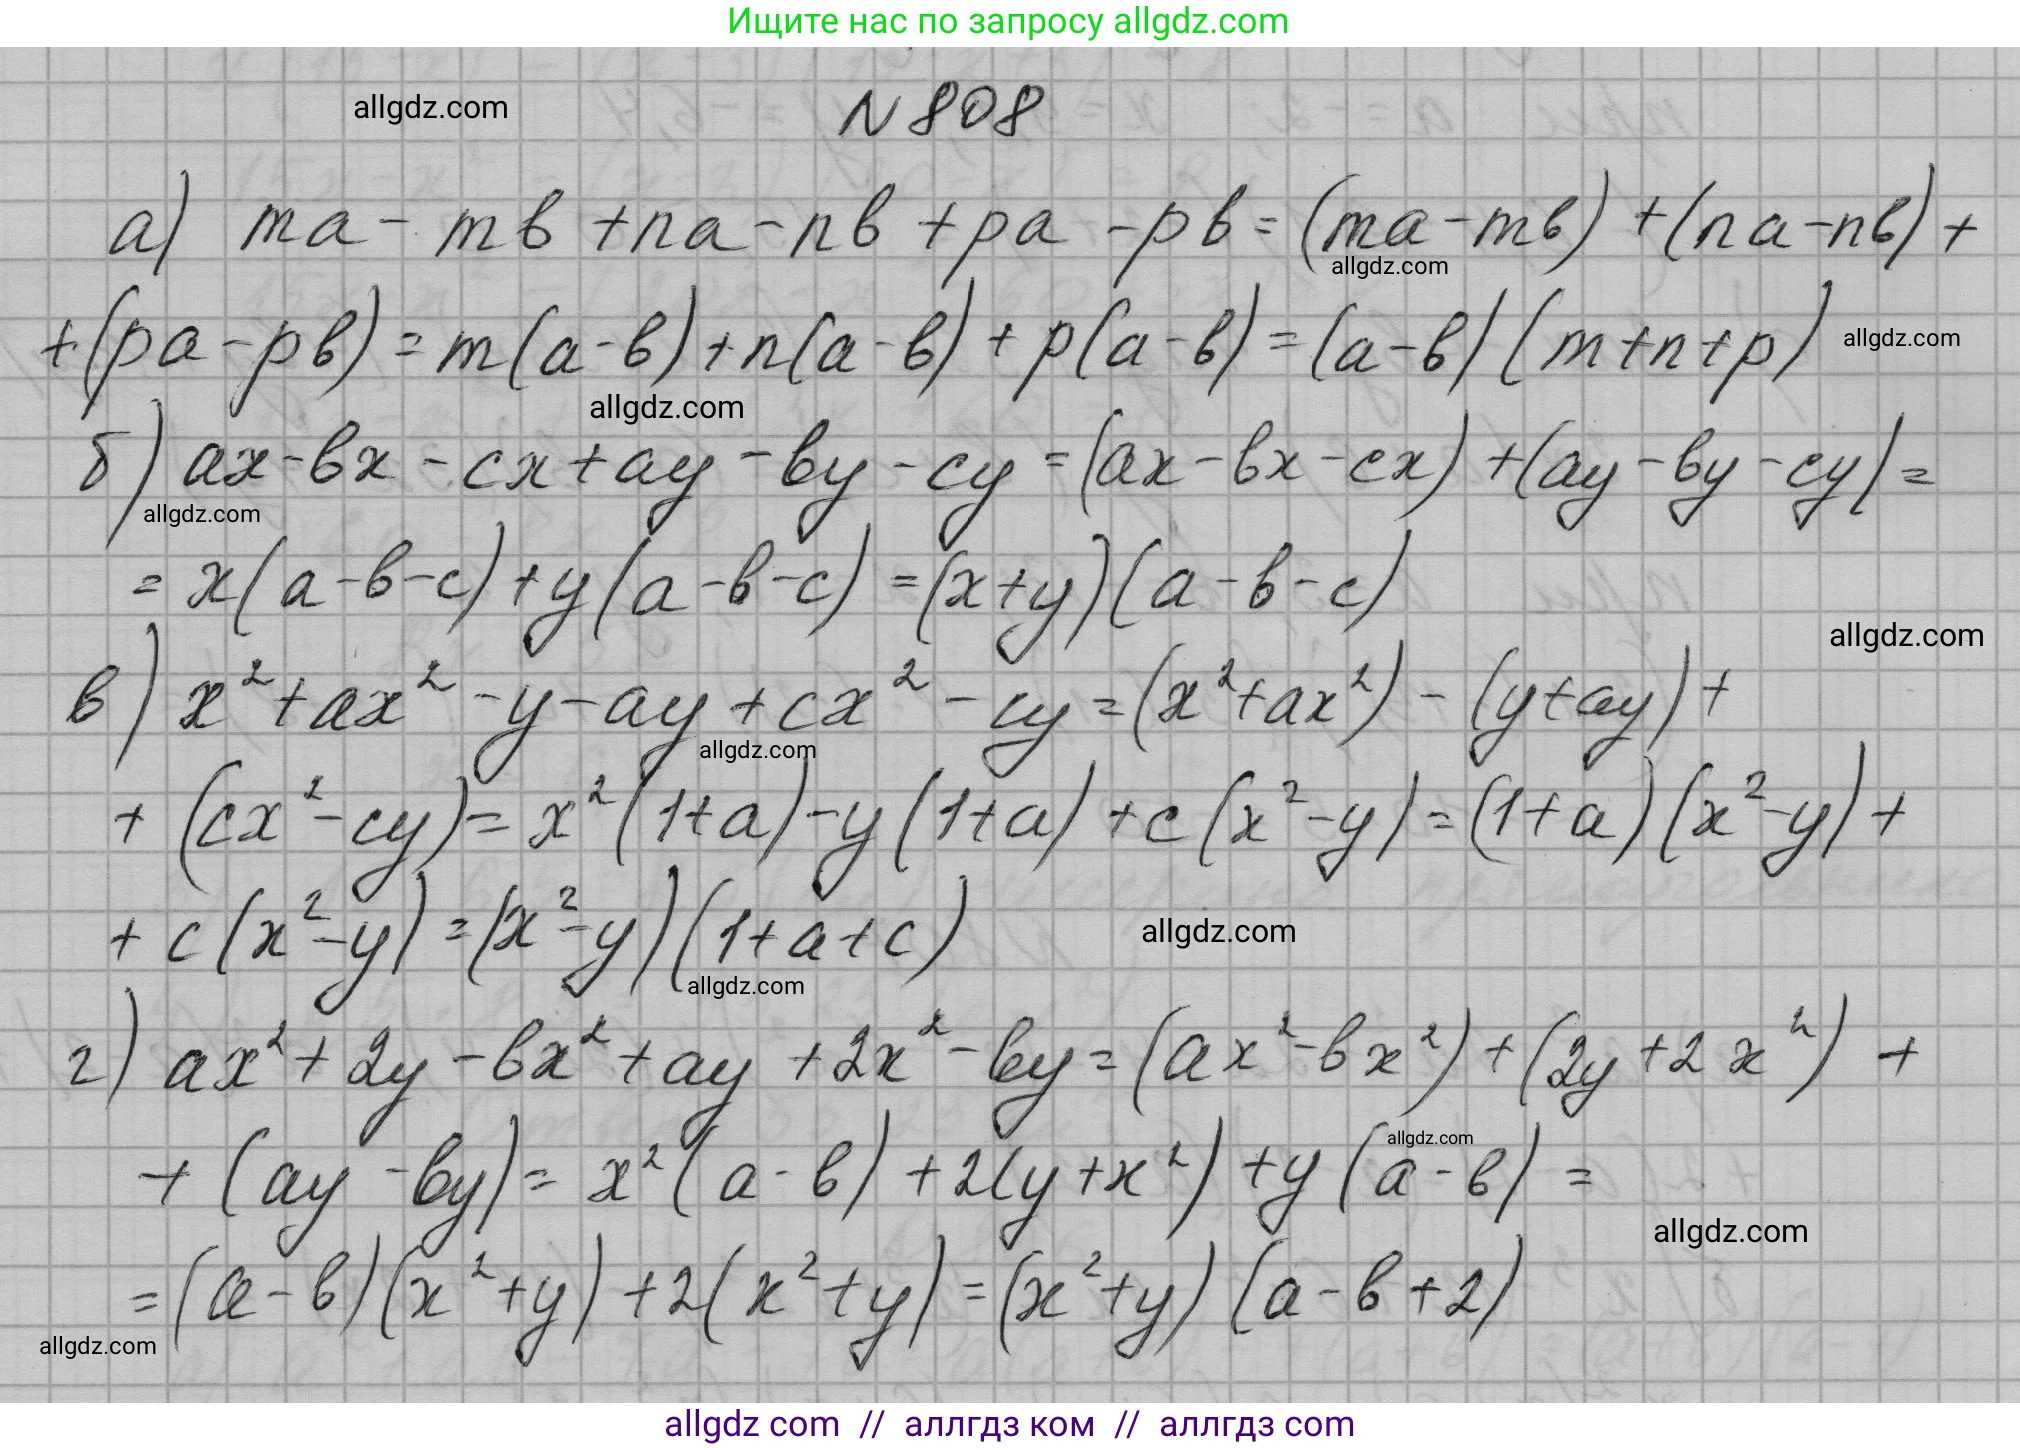 Ищите нас по запросу allgdz.com
allgdz.com
N 808
а) ma - mв + na - nв + pa - pв = (ma - mв) + (na - nв) +
allgdz.com
+ (pa - pв) = m(a - в) + n(a - в) + p(a - в) = (a - в)(m + n + p)
allgdz.com
allgdz.com
б) ax - вx - cx + ay - вy - cy = (ax - вx - cx) + (ay - вy - cy) =
allgdz.com
= x(a - в - c) + y(a - в - c) = (x + y)(a - в - c)
allgdz.com
в) x² + ax² - y - ay + cx² - cy = (x² + ax²) - (y + ay) +
allgdz.com
+ (cx² - cy) = x²(1 + a) - y(1 + a) + c(x² - y) = (1 + a)(x² - y) +
+ c(x² - y) = (x² - y)(1 + a + c)
allgdz.com
allgdz.com
г) ax² + 2y - вx² + ay + 2x² - вy = (ax² - вx²) + (2y + 2x²) +
allgdz.com
+ (ay - вy) = x²(a - в) + 2(y + x²) + y(a - в) =
allgdz.com
= (a - в)(x² + y) + 2(x² + y) = (x² + y)(a - в + 2)
allgdz.com
allgdz com // аллгдз ком // аллгдз com